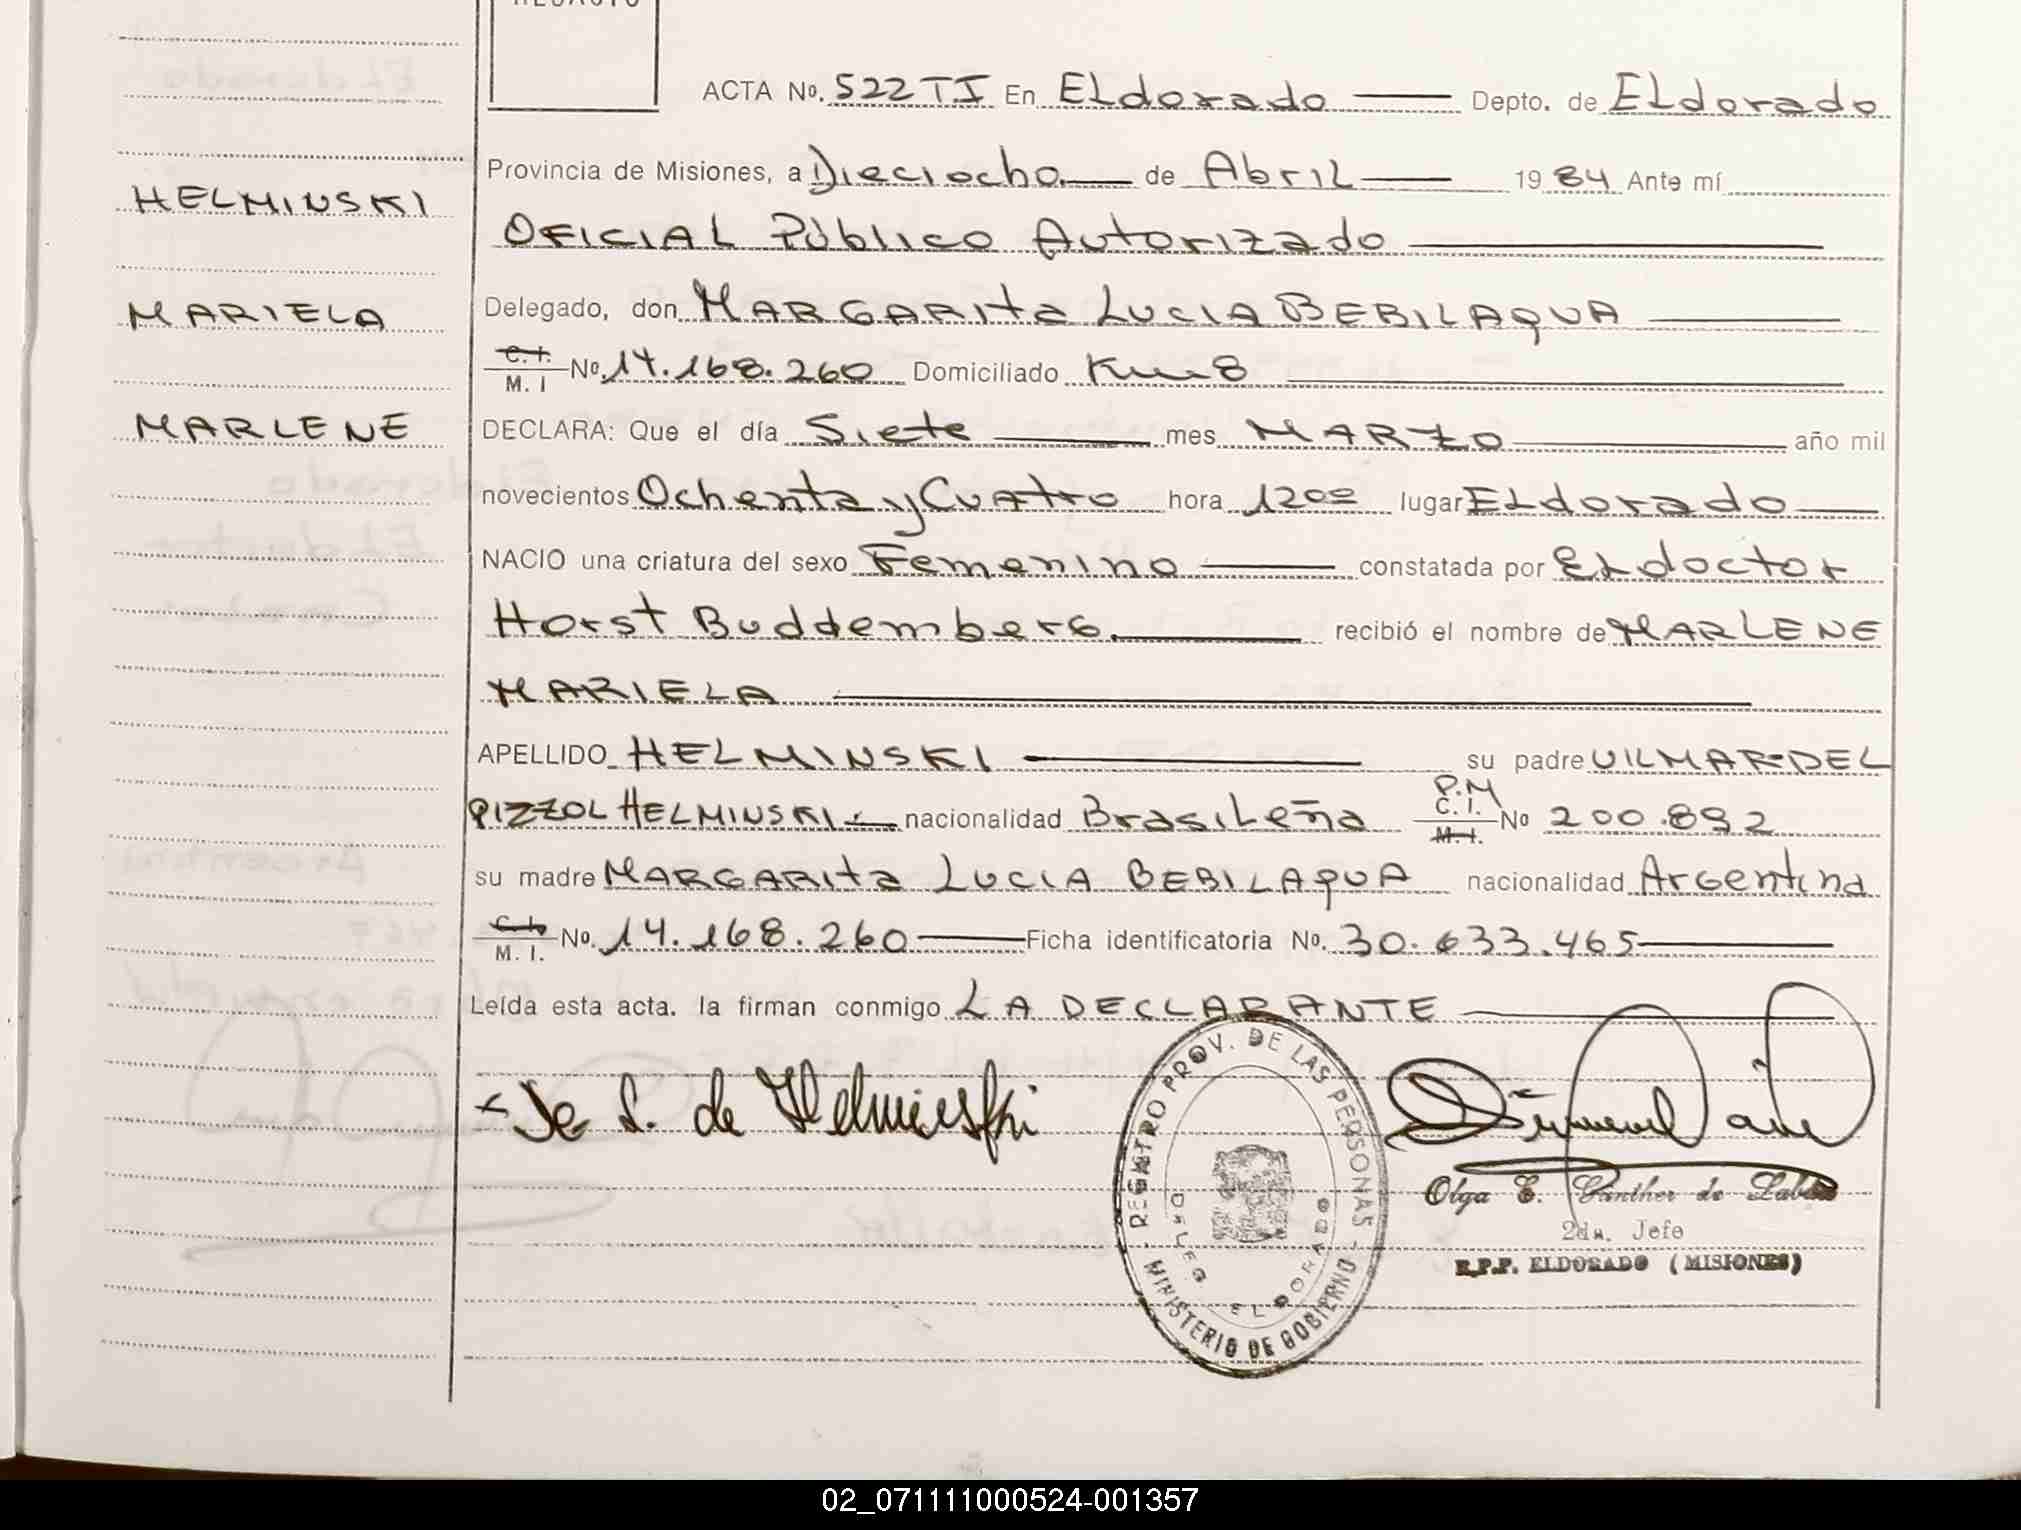 ACTA No. 522 TI En ELdorado Depto. de ELdorado
HELMINSKI
MARIELA
MARLENE
Provincia de Misiones, a Dieciocho de Abril 1984 Ante mí
OFICIAL Público Autorizado
Delegado, don MARGARITA LUCIA BEBILAQUA
C. I. M. I No. 14.168.260 Domiciliado Km 8
DECLARA: Que el día Siete mes MARZO año mil
novecientos Ochenta y Cuatro hora 12oo lugar ELdorado
NACIO una criatura del sexo Femenino constatada por EL doctor
Horst Buddemberg. recibió el nombre de MARLENE
MARIELA
APELLIDO HELMINSKI su padre VILMAR DEL
PIZZOL HELMINSKI nacionalidad BrasiLeña P.M C. I. M. I. No 200.892
su madre MARGARITA LUCIA BEBILAQUA nacionalidad Argentina
C. I. M. I. No. 14.168.260 Ficha identificatoria No. 30.633.465
Leída esta acta. la firman conmigo LA DECLARANTE
de Helminski
REGISTRO PROV. DE LAS PERSONAS - MINISTERIO DE GOBIERNO -
DELEG. ELDORADO
Olga E. Günther de
2da. Jefe
R.P.P. ELDORADO (MISIONES)
02_071111000524-001357